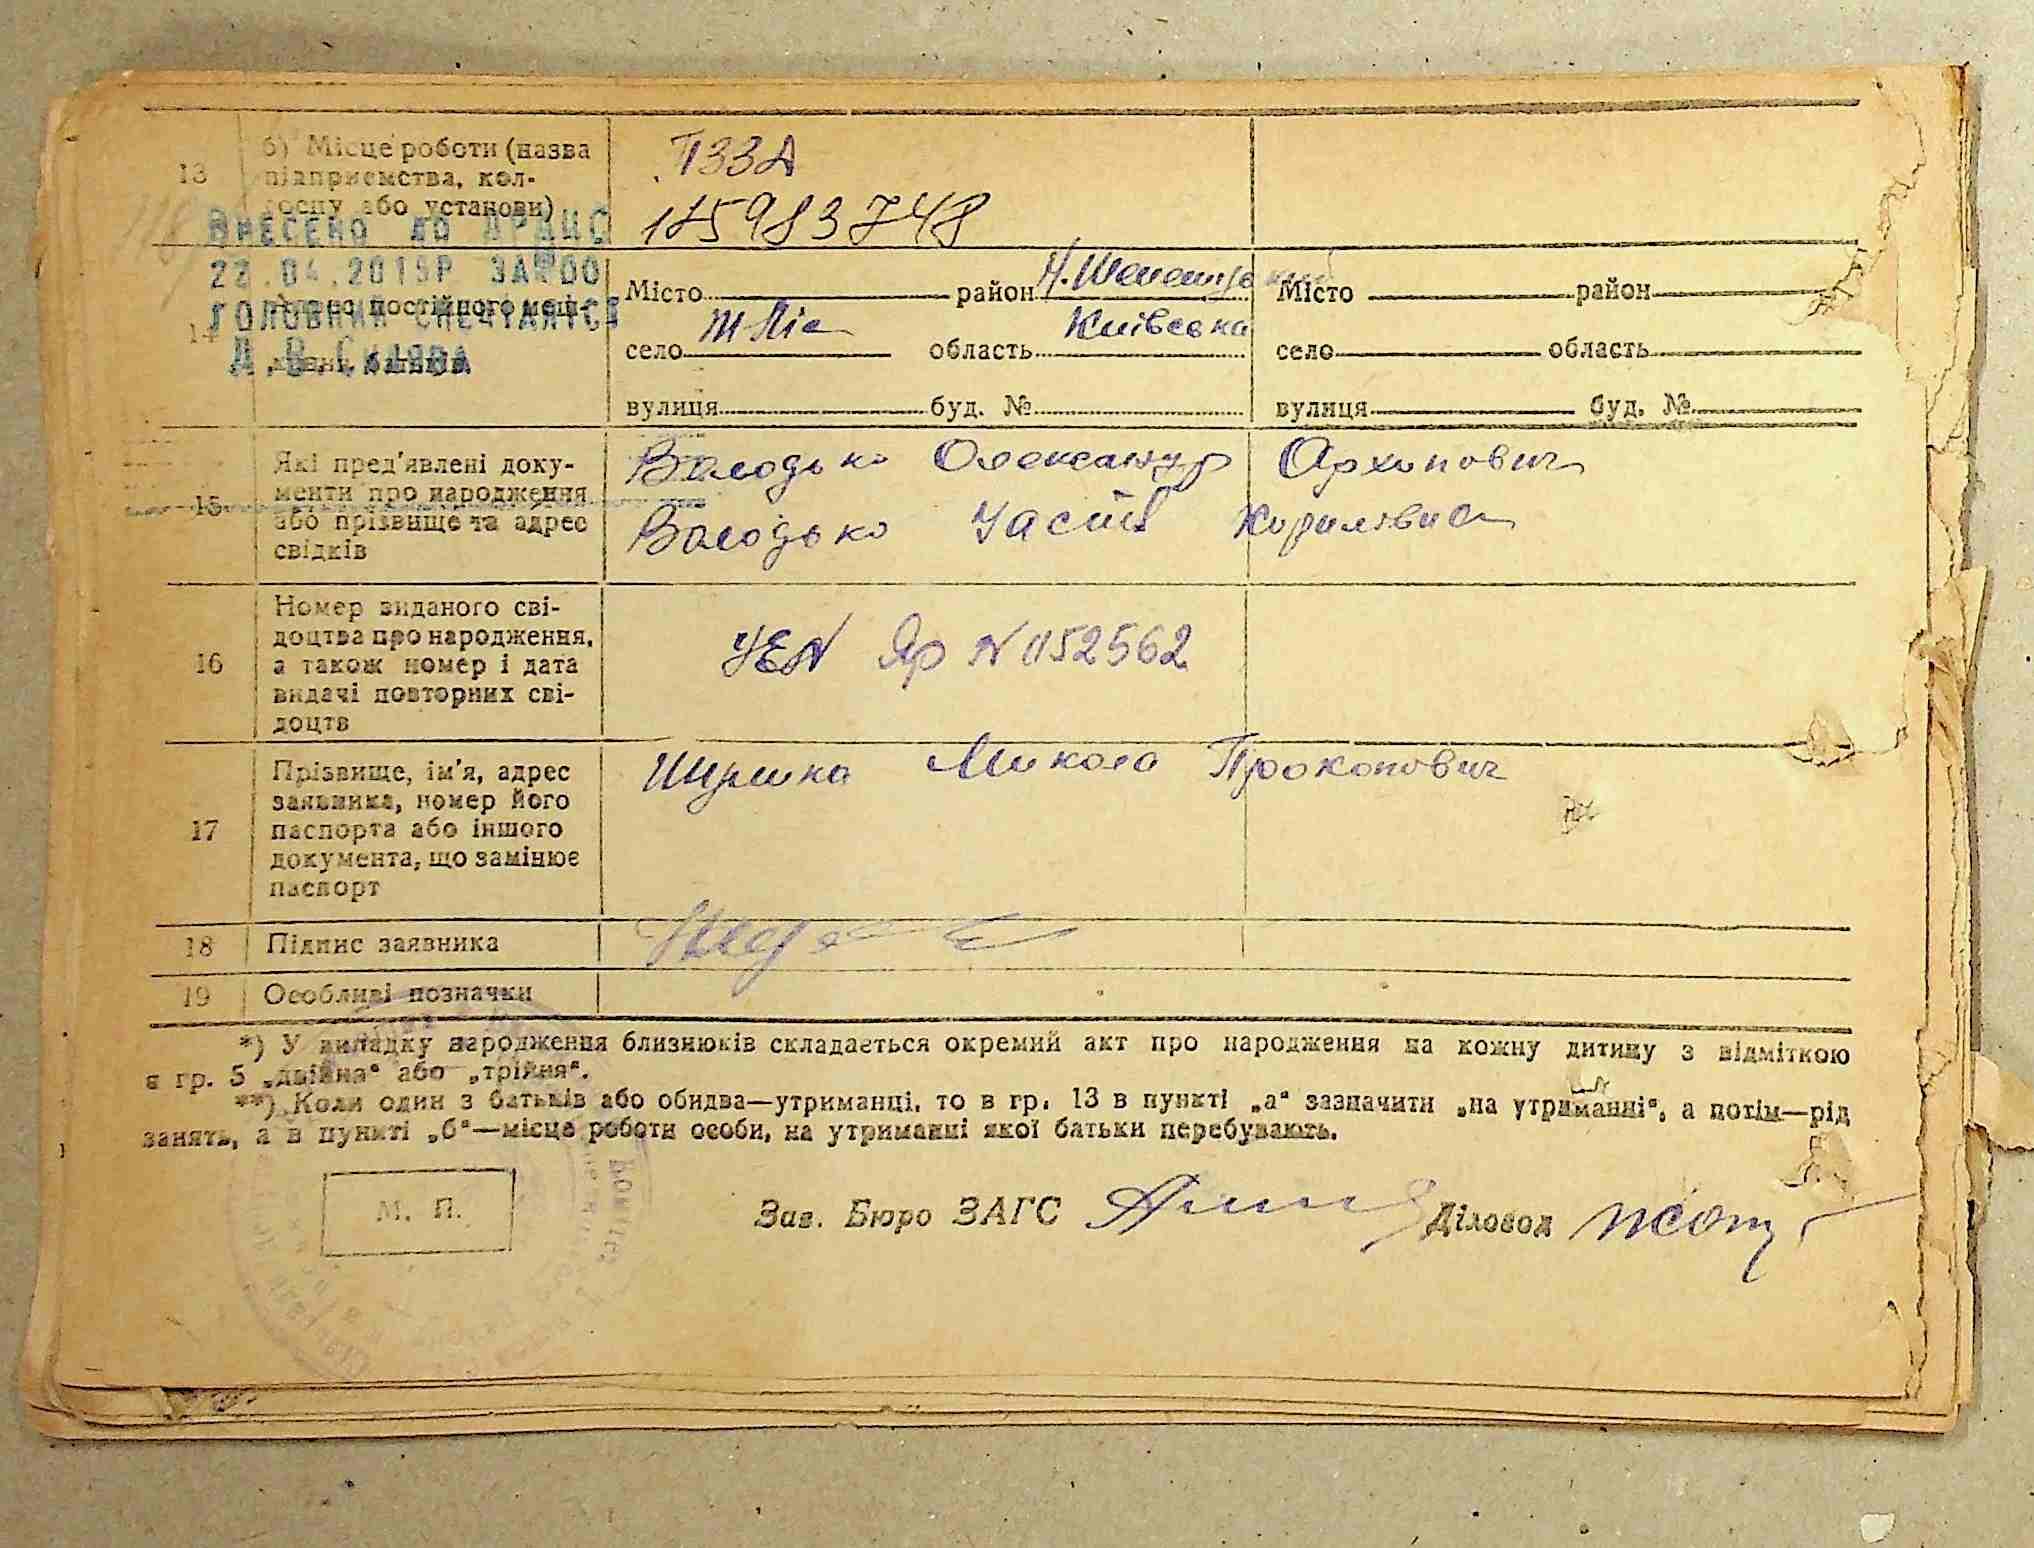 13
б) Місце роботи (назва
підприємства, кол-
госпу або установи)
185983748
ВНЕСЕНО ДО ДРАЦС
22.04.2015Р ЗА
ГОЛОВНИЙ СПЕЦІАЛІСТ
14
Адреса постійного меш-
кання батьків
Місто район
село область Київська
вулиця буд. №
Місто район
село область
вулиця буд. №
15
Які пред'явлені доку-
менти про народження
або прізвище та адрес
свідків
Володько Олександр Архипович
Володько Кирилович
16
Номер виданого сві-
доцтва про народження,
а також номер і дата
видачі повторних сві-
доцтв
N 052562
17
Прізвище, ім'я, адрес
заявника, номер його
паспорта або іншого
документа, що замінює
паспорт
Микола Прокопович
18
Підпис заявника
19
Особливі позначки
*) У випадку народження близнюків складається окремий акт про народження на кожну дитину з відміткою
в гр. 5 „двійня" або „трійня".
**) Коли один з батьків або обидва—утриманці, то в гр. 13 в пункті „а" зазначити „на утриманні", а потім—рід
занять, а в пункті „б"—місце роботи особи, на утриманні якої батьки перебувають.
М. П.
Зав. Бюро ЗАГС
Діловод